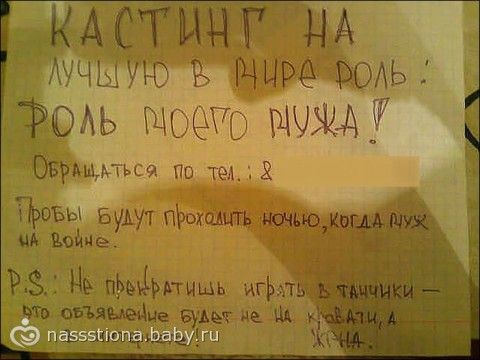 КАСТИНГ НА
ЛУЧШУЮ В МИРЕ РОЛЬ:
РОЛЬ МОЕГО МУЖА!
ОБРАЩАТЬСЯ ПО ТЕЛ.: 8
ПРОБЫ БУДУТ ПРОХОДИТЬ НОЧЬЮ, КОГДА МУЖ
НА ВОЙНЕ.
P.S.: НЕ ПРЕКРАТИШЬ ИГРАТЬ В ТАНЧИКИ —
ЭТО ОБЪЯВЛЕНИЕ БУДЕТ НЕ НА КРОВАТИ, А
ЖЕНА.
nassstiona.baby.ru